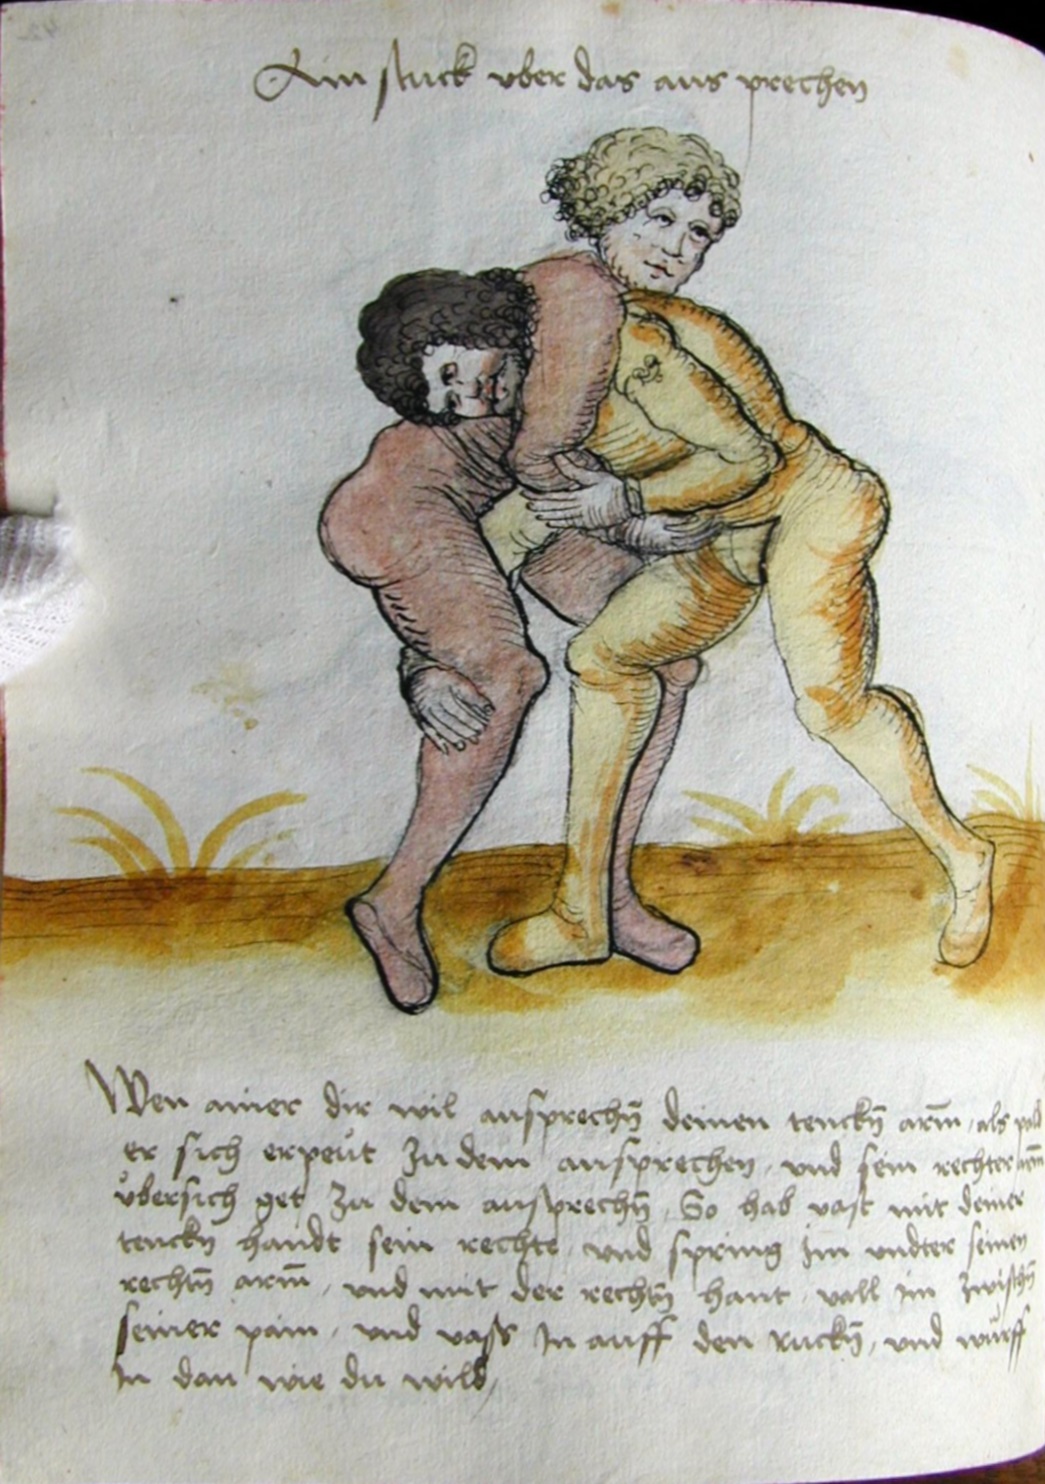 Ain stuck vber das aus prechen
Wen ainer dir wil ausprechn̄ deinen tenckn̄ arm̄, als pald
er sich erpeut zu dem ausprechen, vnd sein rechter arm̄
übersich get zu dem ausprechn̄, So hab vast mit deiner
tenckn handt sein rechte vnd spring im vndter seinen
rechtn̄ arm̄, vnd mit der rechtn̄ hant vall im zwischn̄
seiner pain, vnd vass In auff den ruckn̄, vnd würff
In dan wie du wild,